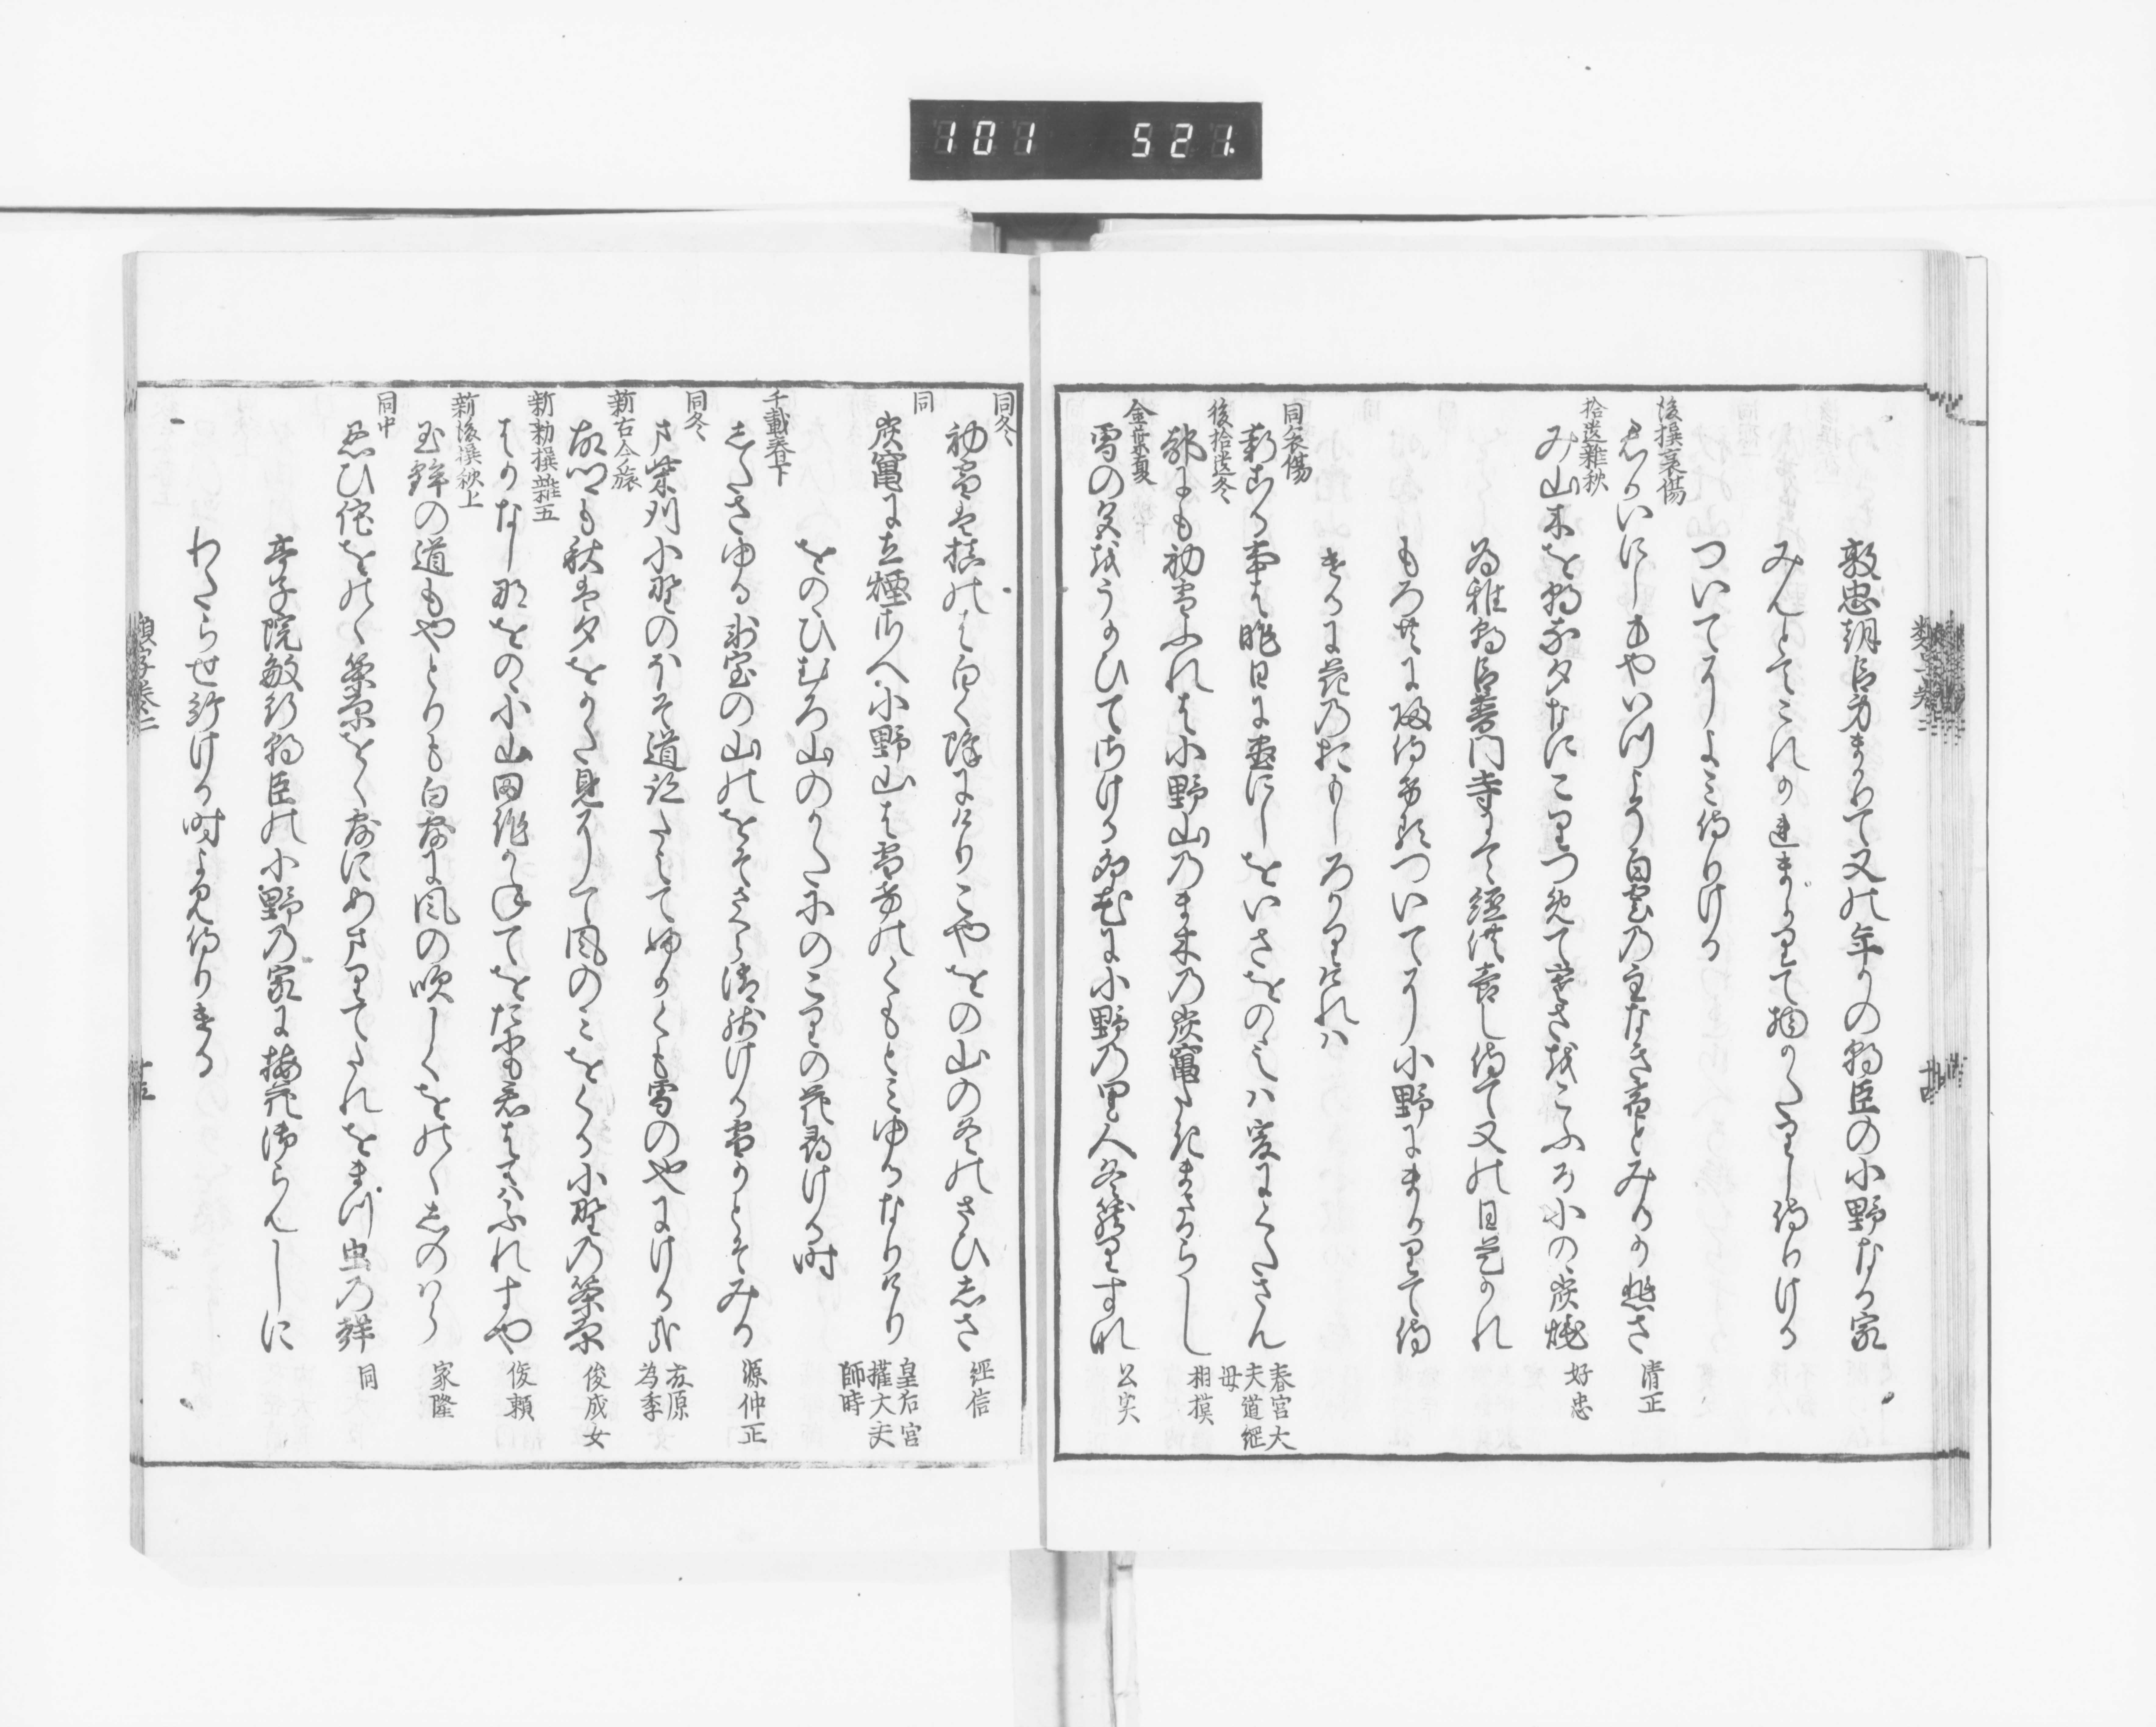 101 521.
敦忠朝臣身まかりて又の年かの朝臣の小野なる家
みんとてこれかれまかりて物かたりし侍りける
ついてによみ侍りける
後撰哀傷
君かいにしかたやいつれそ白雲の主なき宿とみるか悲さ
清正
拾遺雑秋
み山木を朝な夕なにこりつめて寒さをこふる小の炭焼
好忠
為雅朝臣普門寺にて経供養し侍て又の日これ
かれもろともに帰侍けるついてに小野にまかりて侍
けるに花のおもしろかりけれは
同哀傷
薪こる事は昨日に尽にしをいさをのゝえは爰にくたさん
春宮大夫道綱母
後拾遺冬
都にも初雪ふれは小野山のま木の炭竈たきまさるらし
相模
金葉夏
雪の色をうはひてさける卯花に小野の里人冬籠りすな
公実
類字巻二
同冬
初雪は槙のは白く降にけりこやをの山の冬のさひしさ
経信
同
炭竈に立煙さへ小野山は雪けのくもとみゆるなりけり
皇后宮権大夫師時
をのゝひむろ山のかたにのこりの花尋ける時
千載春下
したさゆる氷室の山のをそさくら消残ける雪かとそみる
源仲正
同冬
さ柴刈小野のほそ道跡たえてふかくも雪のやにける哉
藤原為季
新古今旅
故郷も秋は夕をかたみにて風のみをくる小野の篠原
俊成女
新勅撰雑五
はかなしなをのゝ小山田作かねてをたにも君はてはふれすや
俊頼
新後撰秋上
玉鉾の道もやとりも白露に風の吹しくをのゝしのはら
家隆
同中
思ひ侘をのゝ篠原をく露にめさりてたれをまつ虫の声
同
亭子院敏行朝臣の小野の家に梅花御らんしに
わたらせ給ける時よみ侍りける
類字巻二